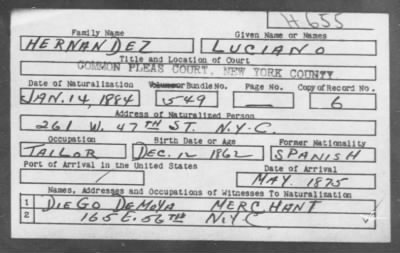 H655
Family Name Given Name or Names
HERNANDEZ LUCIANO
Title and Location of Court
COMMON PLEAS COURT, NEW YORK COUNTY
Date of Naturalization Volume or Bundle No. Page No. Copy of Record No.
JAN. 14, 1884 549 6
Address of Naturalized Person
261 W. 47TH ST. N.Y.C.
Occupation Birth Date or Age Former Nationality
TAILOR DEC. 12 1862 SPANISH
Port of Arrival in the United States Date of Arrival
/ MAY. 1875
Names, Addresses and Occupations of Witnesses To Naturalization
1 DIEGO DEMOYA MERCHANT
2 165 E. 56TH N.Y.C